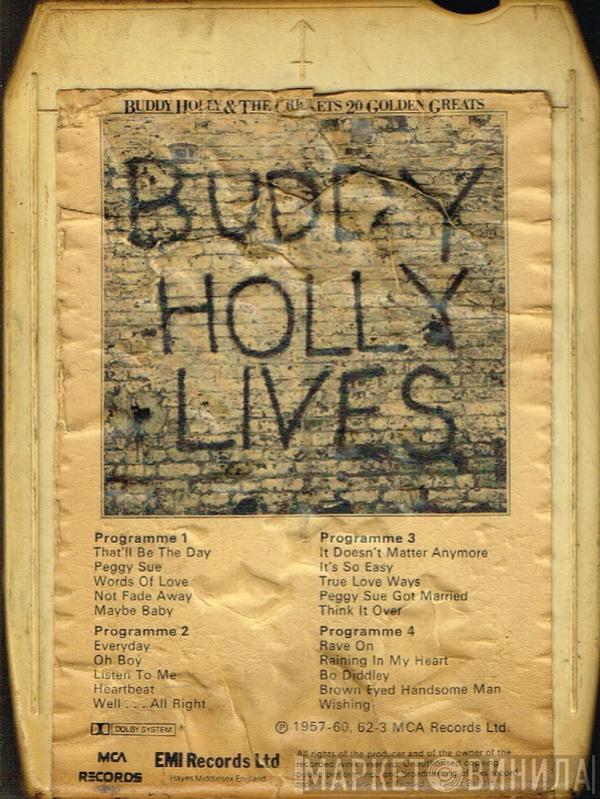 BUDDY HOLLY & THE CRICKETS 20 GOLDEN GREATS
BUDDY
HOLLY
LIVES
Programme 1
That'll Be The Day
Peggy Sue
Words Of Love
Not Fade Away
Maybe Baby
Programme 2
Everyday
Oh Boy
Listen To Me
Heartbeat
Well . . . All Right
Programme 3
It Doesn't Matter Anymore
It's So Easy
True Love Ways
Peggy Sue Got Married
Think It Over
Programme 4
Rave On
Raining In My Heart
Bo Diddley
Brown Eyed Handsome Man
Wishing
DOLBY SYSTEM ®
℗ 1957-60, 62-3 MCA Records Ltd.
MCA RECORDS
EMI Records Ltd
Hayes Middlesex England
All rights of the producer and of the owner of the
recorded work reserved. Unauthorised copying
public performance and broadcasting of this record
МАРКЕТ ВИНИЛА